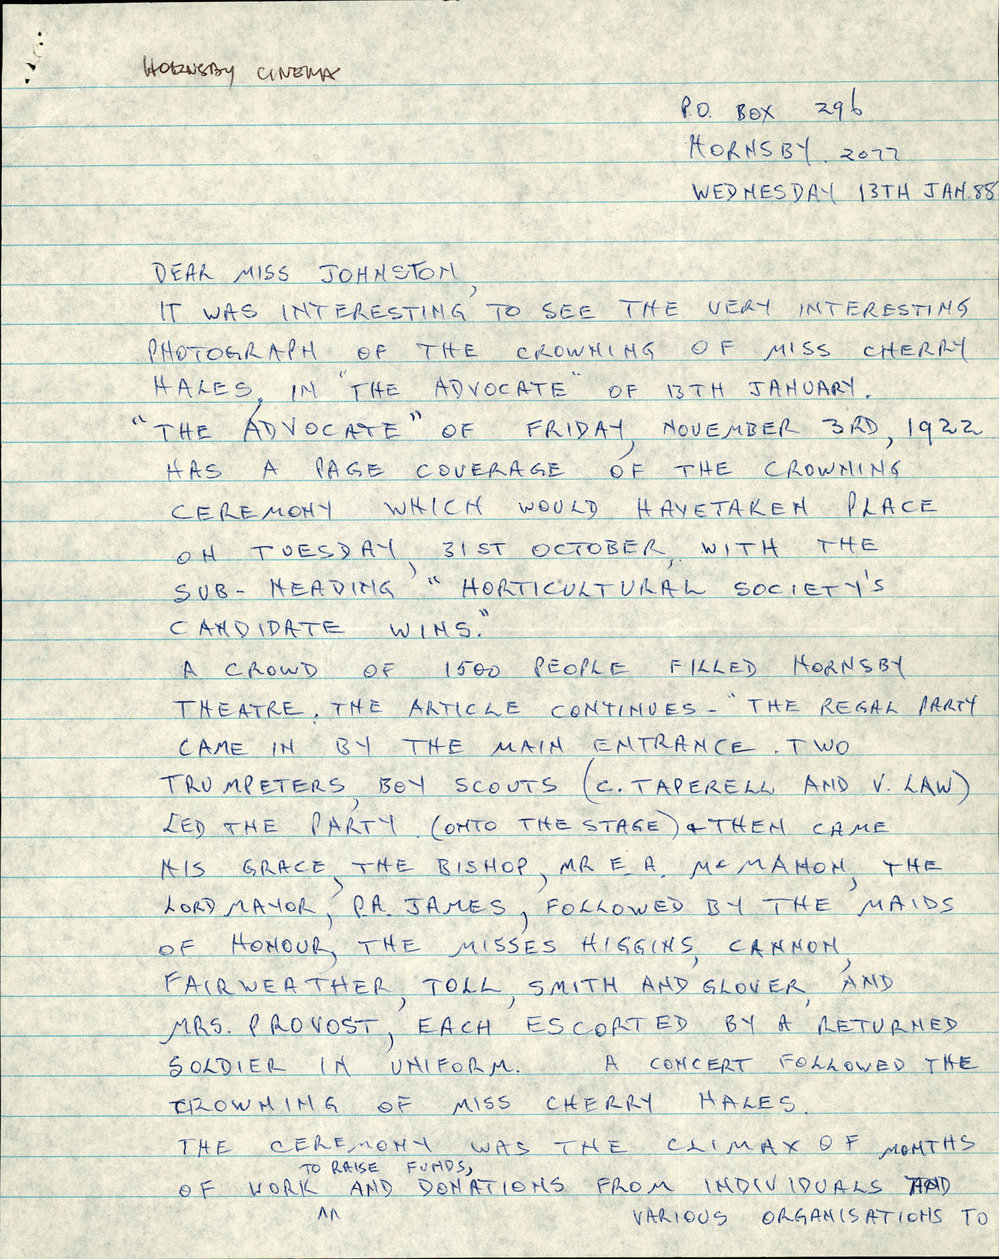 HORNSBY CINEMA
P.O. BOX 296
HORNSBY. 2077
WEDNESDAY 13TH JAN. 88
DEAR MISS JOHNSTON,
IT WAS INTERESTING TO SEE THE VERY INTERESTING
PHOTOGRAPH OF THE CROWNING OF MISS CHERRY
HALES, IN "THE ADVOCATE" OF 13TH JANUARY.
"THE ADVOCATE" OF FRIDAY, NOVEMBER 3RD, 1922
HAS A PAGE COVERAGE OF THE CROWNING
CEREMONY WHICH WOULD HAVETAKEN PLACE
ON TUESDAY, 31ST OCTOBER, WITH THE
SUB-HEADING "HORTICULTURAL SOCIETY'S
CANDIDATE WINS."
A CROWD OF 1500 PEOPLE FILLED HORNSBY
THEATRE. THE ARTICLE CONTINUES - "THE REGAL PARTY
CAME IN BY THE MAIN ENTRANCE. TWO
TRUMPETERS, BOY SCOUTS (C. TAPERELL AND V. LAW)
LED THE PARTY. (ONTO THE STAGE) & THEN CAME
HIS GRACE, THE BISHOP, MR E.A. McMAHON, THE
LORD MAYOR, P.A. JAMES, FOLLOWED BY THE MAIDS
OF HONOUR, THE MISSES HIGGINS, CANNON,
FAIRWEATHER, TOLL, SMITH AND GLOVER, AND
MRS. PROVOST, EACH ESCORTED BY A RETURNED
SOLDIER IN UNIFORM. A CONCERT FOLLOWED THE
CROWNING OF MISS CHERRY HALES.
THE CEREMONY WAS THE CLIMAX OF MONTHS
TO RAISE FUNDS,
OF WORK AND DONATIONS FROM INDIVIDUALS AND
VARIOUS ORGANISATIONS TO